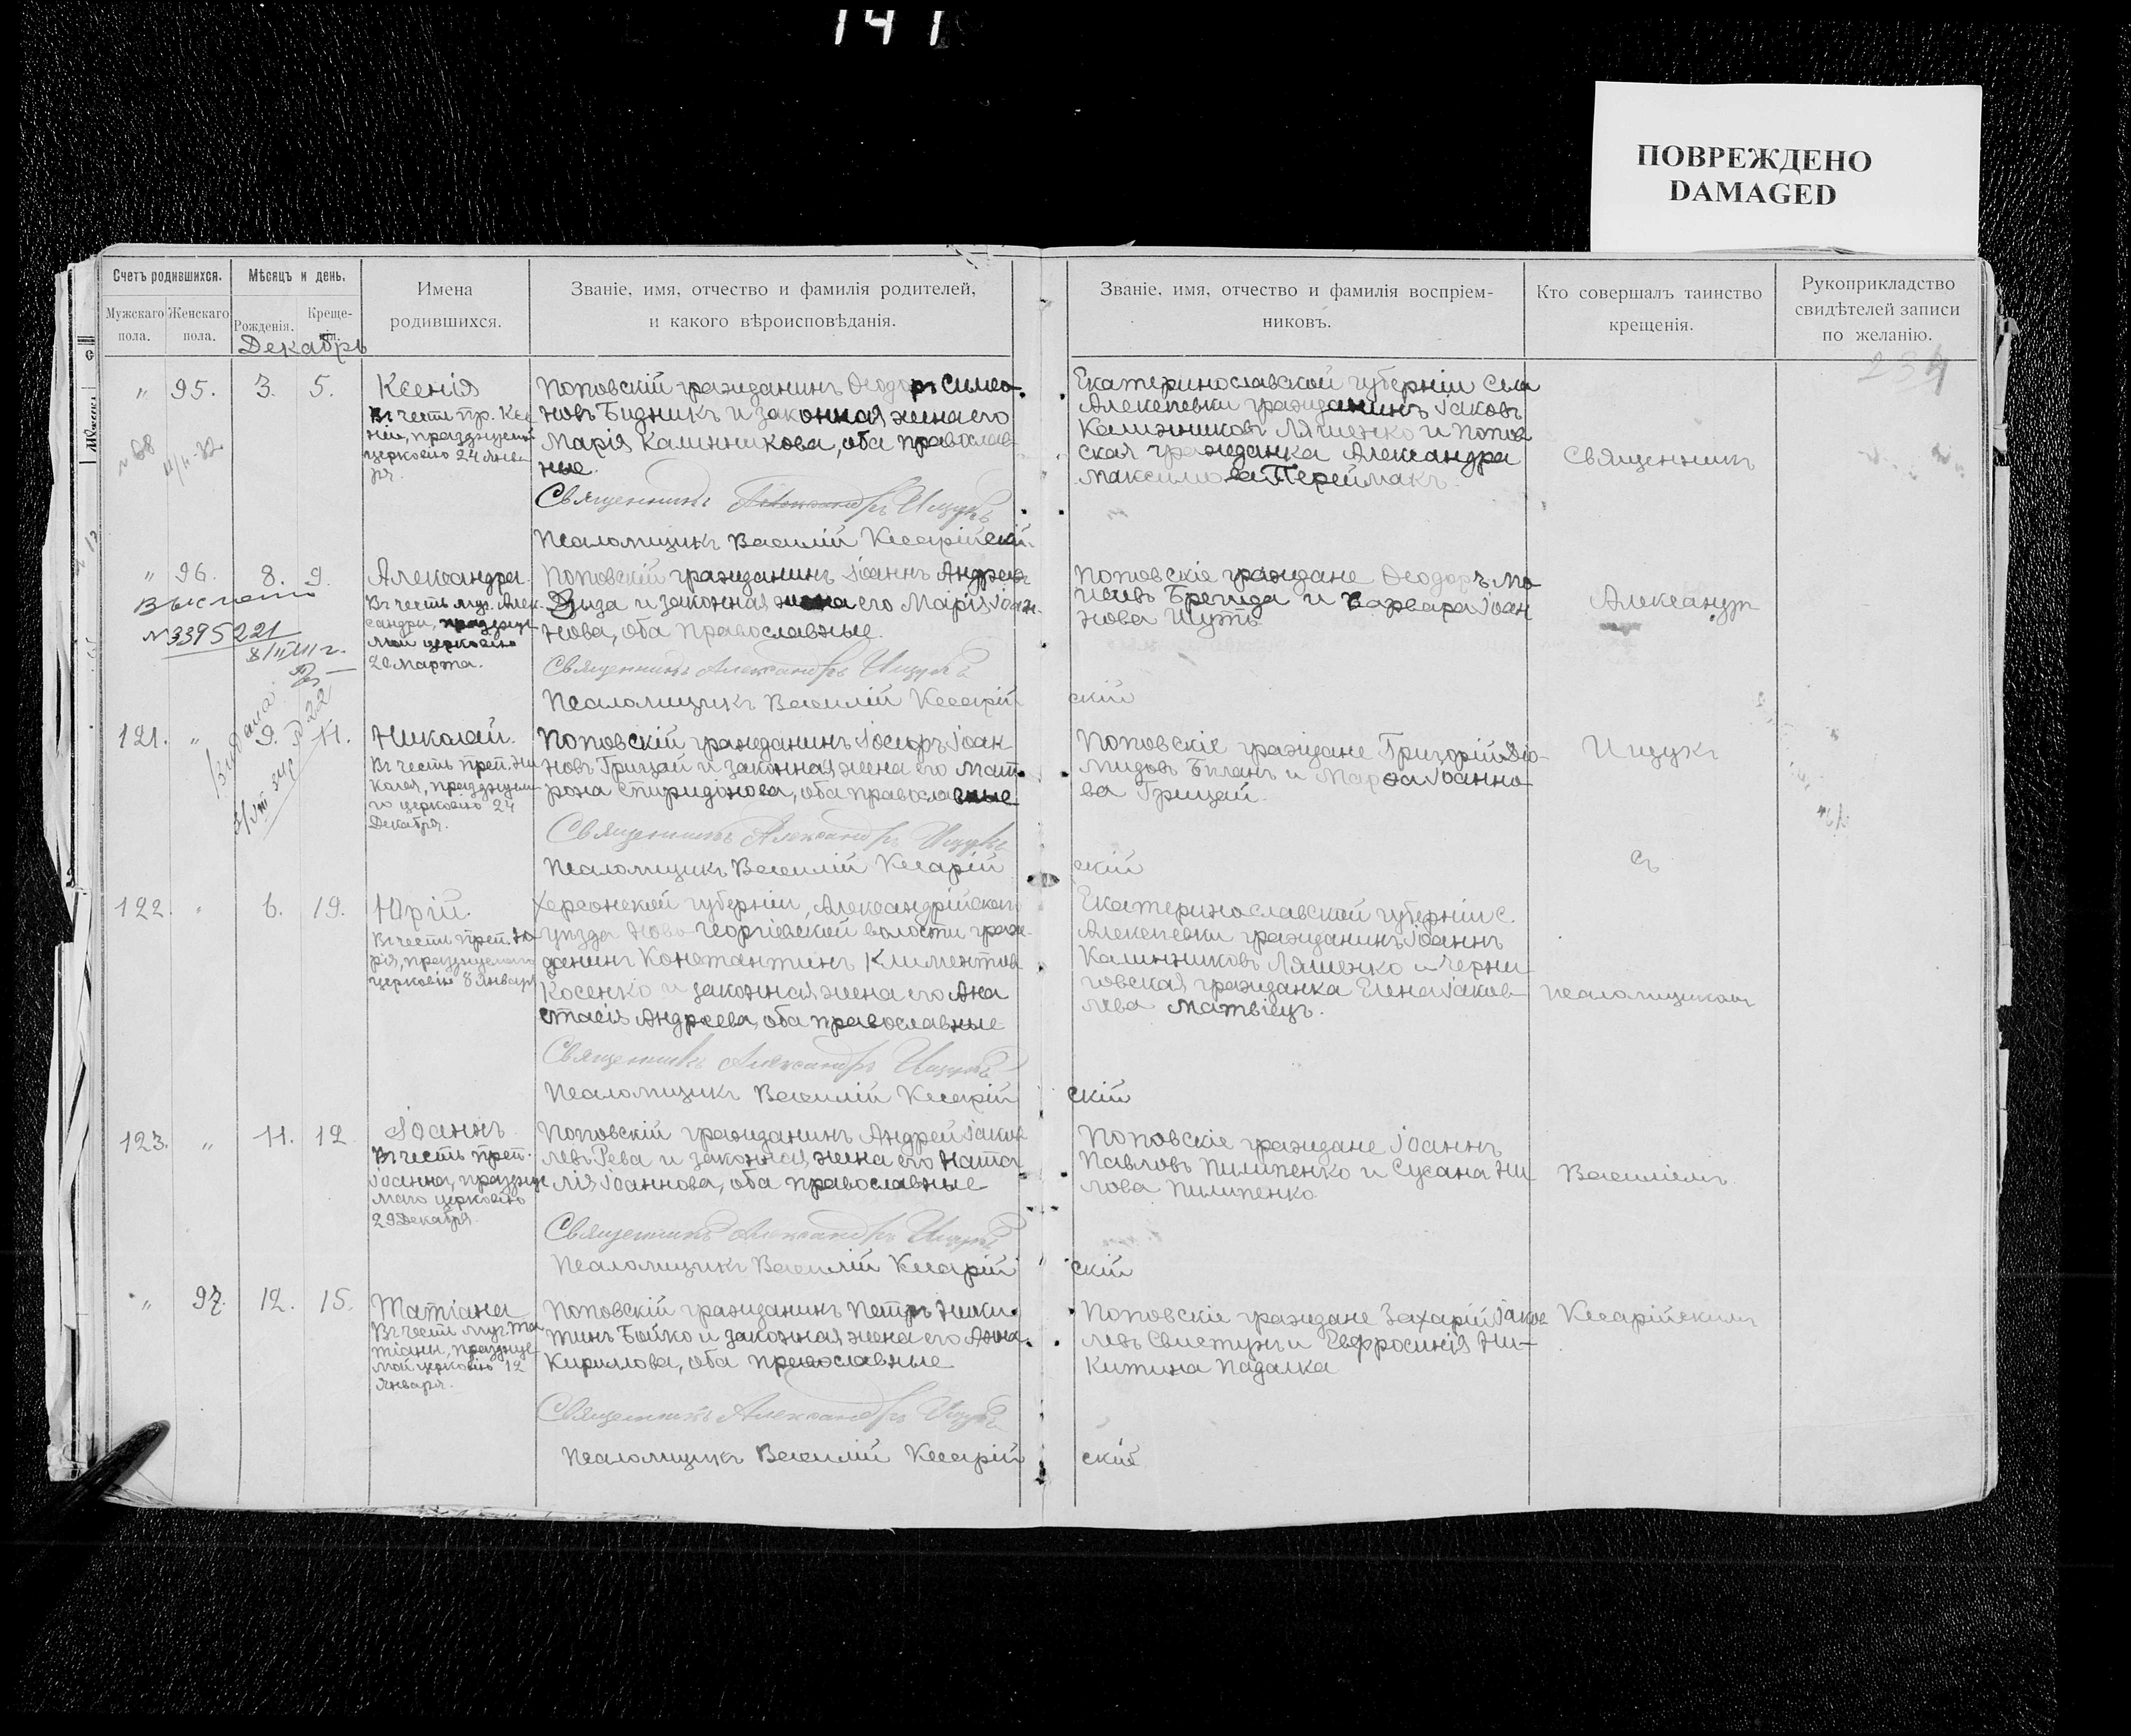 141
ПОВРЕЖДЕНО
DAMAGED
Счетъ родившихся.
Мужскаго пола.
Женскаго пола.
Мѣсяцъ и день.
Рожденія.
Креще-
нія.
Декабрь
Имена
родившихся.
Званіе, имя, отчество и фамилія родителей,
и какого вѣроисповѣданія.
Званіе, имя, отчество и фамилія воспріем-
никовъ.
Кто совершалъ таинство
крещенія.
Рукоприкладство
свидѣтелей записи
по желанію.
234
" 95. 3. 5.
Ксенія
Въ честь пр. Ксе
ніи, празднуем
церковію 24 Янва
ря.
Поповскій гражданинъ Ѳеодоръ Симео-
новъ Бидникъ и законная жена его
Марія Калинникова, оба православ-
ные.
Священникъ Александръ Ищукъ
Псаломщикъ Василій Кесарійскій
Екатеринославской губерніи села
Алексѣевки гражданинъ Іаковъ
Калинниковъ Ляшенко и попов
ская гражданка Александра
Максимова Переймакъ
Священникъ
" 96. 8. 9.
Выслано
№ 3395221
Александра
Въ честь муч. Алек-
сандры, праздну
мой церковію
20 Марта.
Поповскій гражданинъ Іоаннъ Андреев
Дзыза и законная жена его Марія Іоан-
нова, оба православные.
Священникъ Александръ Ищукъ
Псаломщикъ Василій Кесарій скій
Поповскіе граждане Ѳеодоръ Мо
исѣевъ и Варвара Іоан
нова Шуть
Александр
121. " 9. 11.
Николай.
Въ честь преп. Ни
колая, празднуем-
го церковію 24
Декабря.
Поповскій гражданинъ Іосифъ Іоан-
новъ Грицай и законная жена его Мат-
рона Спиридонова, оба православные
Священникъ Александръ Ищукъ
Псаломщикъ Василій Кесарій скій
Поповскіе граждане Григорій Дio-
мидовъ Биланъ и Марѳа Іоанно-
ва Грицай.
Ищукъ
съ
122. " 6. 19.
Юрій.
Въ честь преп. Ю-
рія, празднуемаго
церковію 8 Января
Херсонской губерніи, Александрійскаго
уѣзда Ново-Георгіевской волости граж-
данинъ Константинъ Климентов
Косенко и законная жена его Ана
стасія Андреева, оба православные
Священникъ Александръ Ищукъ
Псаломщикъ Василій Кесарій скій
Екатеринославской губерніи с.
Алексѣевки гражданинъ Іоаннъ
Калинниковъ Ляшенко и Черни-
говская гражданка Елена Іаков-
лева Матвіецъ.
псаломщикомъ
123. " 11. 12
Іоаннъ
Въ честь преп.
Іоанна, праздну
маго церковію
29 Декабря.
Поповскій гражданинъ Андрей Іаков
левъ Рева и законная жена его Ната
лія Іоаннова, оба православные
Священникъ Александръ Ищукъ
Псаломщикъ Василій Кесарій скій
Поповскіе граждане Іоаннъ
Павловъ Пилипенко и Сусана Ни
лова Пилипенко
Василіемъ
" 97. 12. 15.
Татіана
Въ честь муч. Та
тіаны, праздну
мой церковію 12
Января.
Поповскій гражданинъ Петръ Ники-
тинъ Бойко и законная жена его Анна
Кирилова, оба православные
Священникъ Александръ Ищукъ
Псаломщикъ Василій Кесарій скій
Поповскіе граждане Захарій Іаков
левъ Свистунъ и Евфросинія Ни-
китина Падалка
Кесарійскимъ